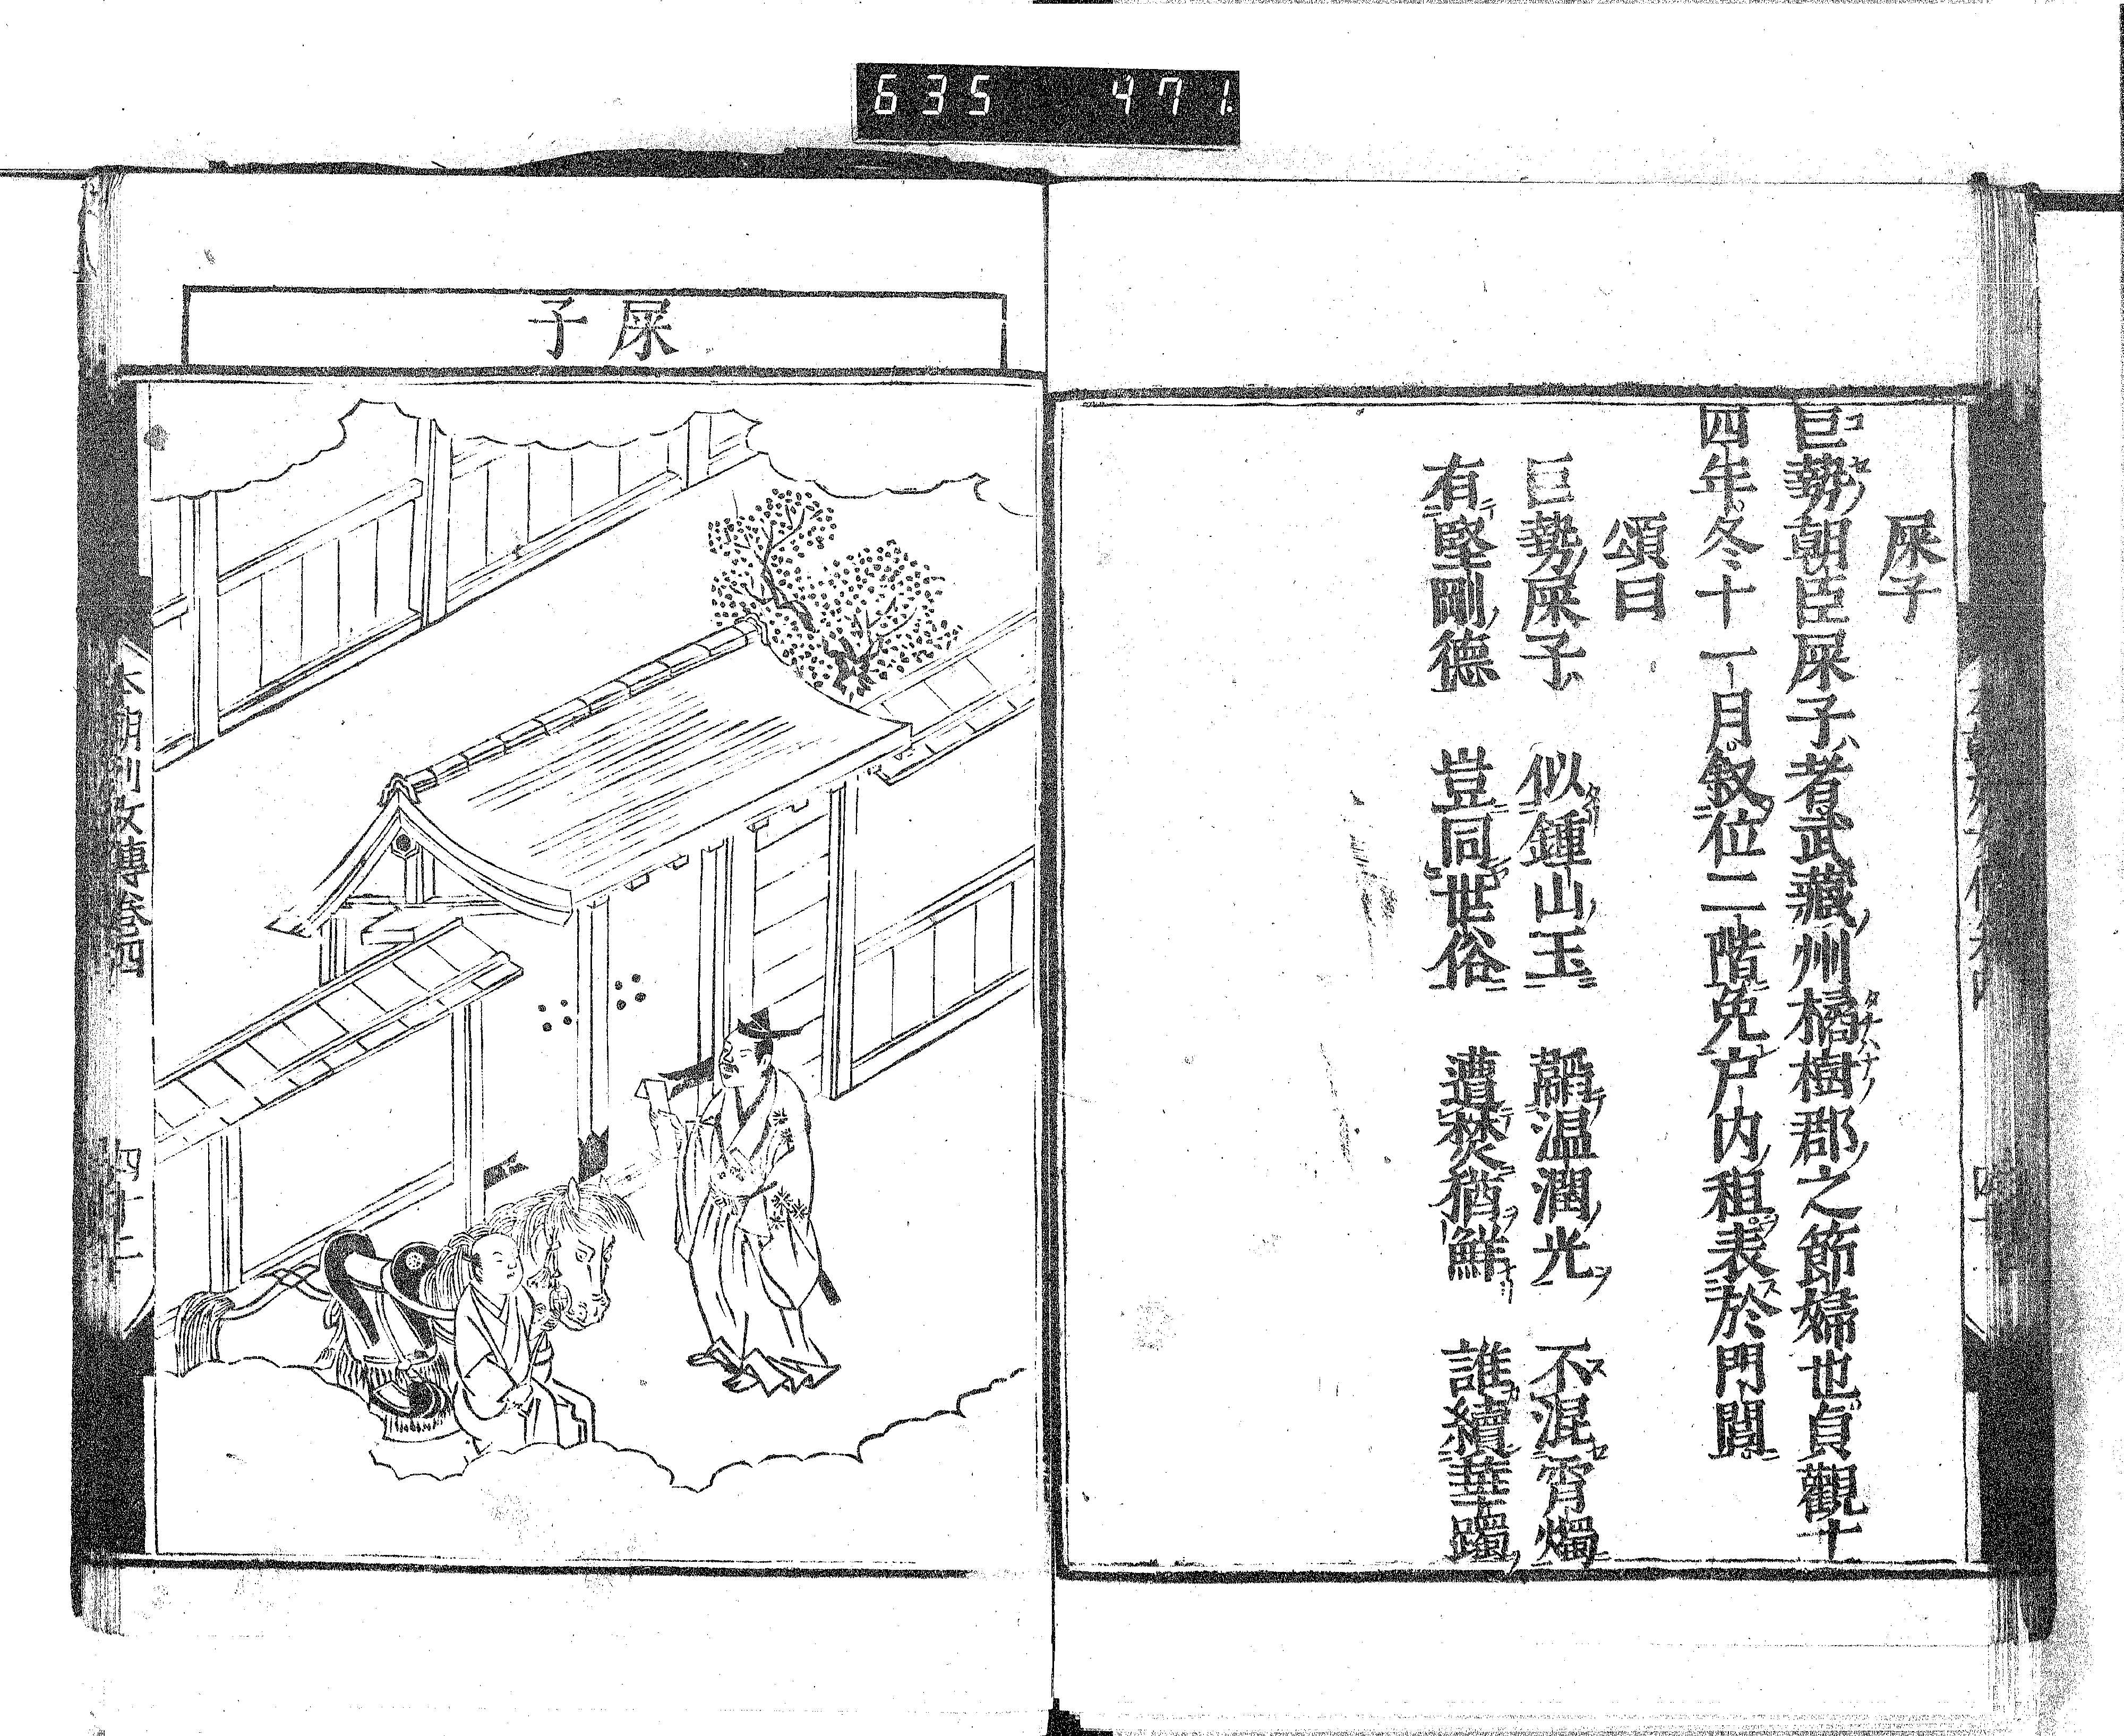 635 471
屎子
巨勢朝臣屎子者武藏州橘樹郡之節婦也貞觀十
四年冬十一月叙位二階免戸内租表於門閭
頌曰
巨勢屎子 似鍾山玉 韞温潤光 不混霄燭
有堅剛德 豈同世俗 遭焚猶鮮 誰續華躅
屎子
本朝列女傳卷四 四十二